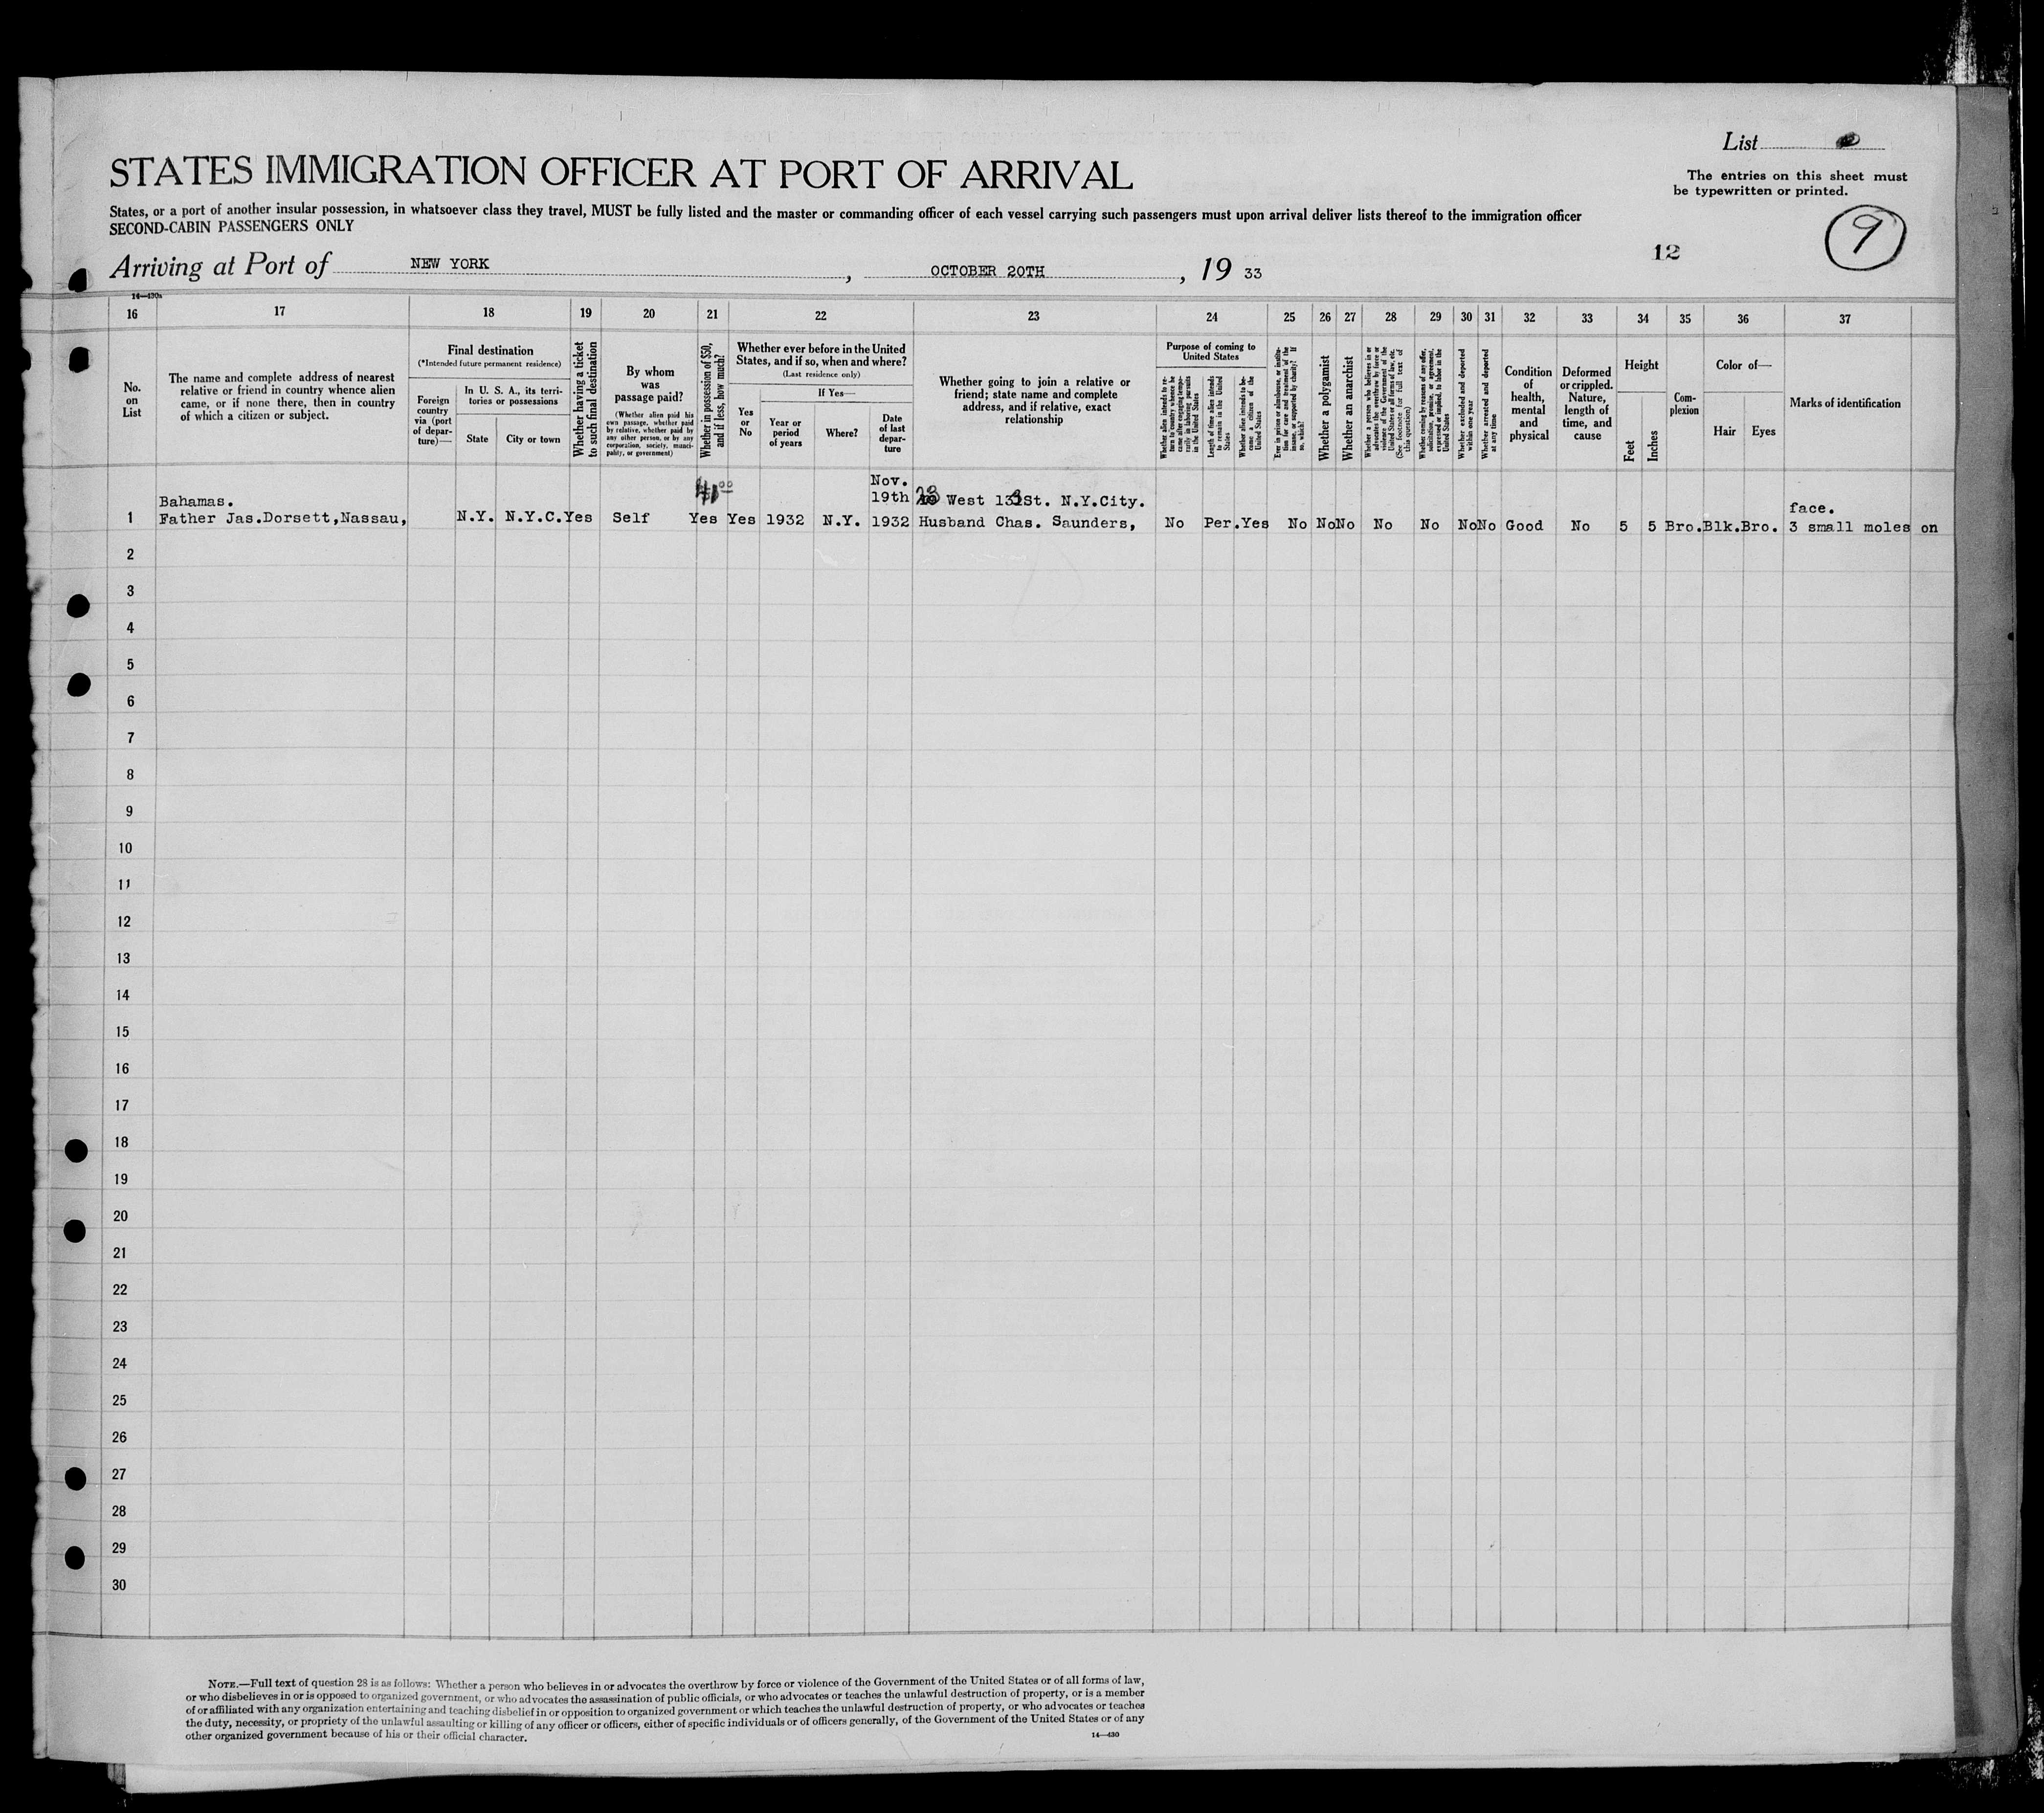 List
STATES IMMIGRATION OFFICER AT PORT OF ARRIVAL
The entries on this sheet must
be typewritten or printed.
States, or a port of another insular possession, in whatsoever class they travel, MUST be fully listed and the master or commanding officer of each vessel carrying such passengers must upon arrival deliver lists thereof to the immigration officer
SECOND-CABIN PASSENGERS ONLY
12
9
Arriving at Port of NEW YORK, OCTOBER 20TH, 19 33
14—430a
16 17 18 19 20 21 22 23 24 25 26 27 28 29 30 31 32 33 34 35 36 37
No.
on
List
The name and complete address of nearest
relative or friend in country whence alien
came, or if none there, then in country
of which a citizen or subject.
Final destination
(*Intended future permanent residence)
Foreign
country
via (port
of depar-
ture)—
In U. S. A., its terri-
tories or possessions
State
City or town
Whether having a ticket
to such final destination
By whom
was
passage paid?
(Whether alien paid his
own passage, whether paid
by relative, whether paid by
any other person, or by any
corporation, society, munici-
pality, or government)
Whether in possession of $50,
and if less, how much?
Whether ever before in the United
States, and if so, when and where?
(Last residence only)
Yes
or
No
If Yes—
Year or
period
of years
Where?
Date
of last
depar-
ture
Whether going to join a relative or
friend; state name and complete
address, and if relative, exact
relationship
Purpose of coming to
United States
Whether alien intends to re-
turn to country whence he
came after engaging tempo-
rarily in laboring pursuits
in the United States
Length of time alien intends
to remain in the United
States
Whether alien intends to be-
come a citizen of the
United States
Ever in prison or almshouse, or institu-
tion for care and treatment of the
insane, or supported by charity? If
so, which?
Whether a polygamist
Whether an anarchist
Whether a person who believes in or
advocates the overthrow by force or
violence of the Government of the
United States or all forms of law, etc.
(See footnote for full text of
this question)
Whether coming by reasons of any offer,
solicitation, promise, or agreement,
expressed or implied, to labor in the
United States
Whether excluded and deported
within one year
Whether arrested and deported
at any time
Condition
of
health,
mental
and
physical
Deformed
or crippled.
Nature,
length of
time, and
cause
Height
Feet
Inches
Com-
plexion
Color of—
Hair
Eyes
Marks of identification
Nov.
Bahamas. 19th West St. N.Y.City. face.
1 Father Jas.Dorsett,Nassau, N.Y. N.Y.C. Yes Self Yes Yes 1932 N.Y. 1932 Husband Chas. Saunders, No Per. Yes No No No No No No No Good No 5 5 Bro. Blk. Bro. 3 small moles on
2
3
4
5
6
7
8
9
10
11
12
13
14
15
16
17
18
19
20
21
22
23
24
25
26
27
28
29
30
NOTE.—Full text of question 28 is as follows: Whether a person who believes in or advocates the overthrow by force or violence of the Government of the United States or of all forms of law,
or who disbelieves in or is opposed to organized government, or who advocates the assassination of public officials, or who advocates or teaches the unlawful destruction of property, or is a member
of or affiliated with any organization entertaining and teaching disbelief in or opposition to organized government or which teaches the unlawful destruction of property, or who advocates or teaches
the duty, necessity, or propriety of the unlawful assaulting or killing of any officer or officers, either of specific individuals or of officers generally, of the Government of the United States or of any
other organized government because of his or their official character.
14—430